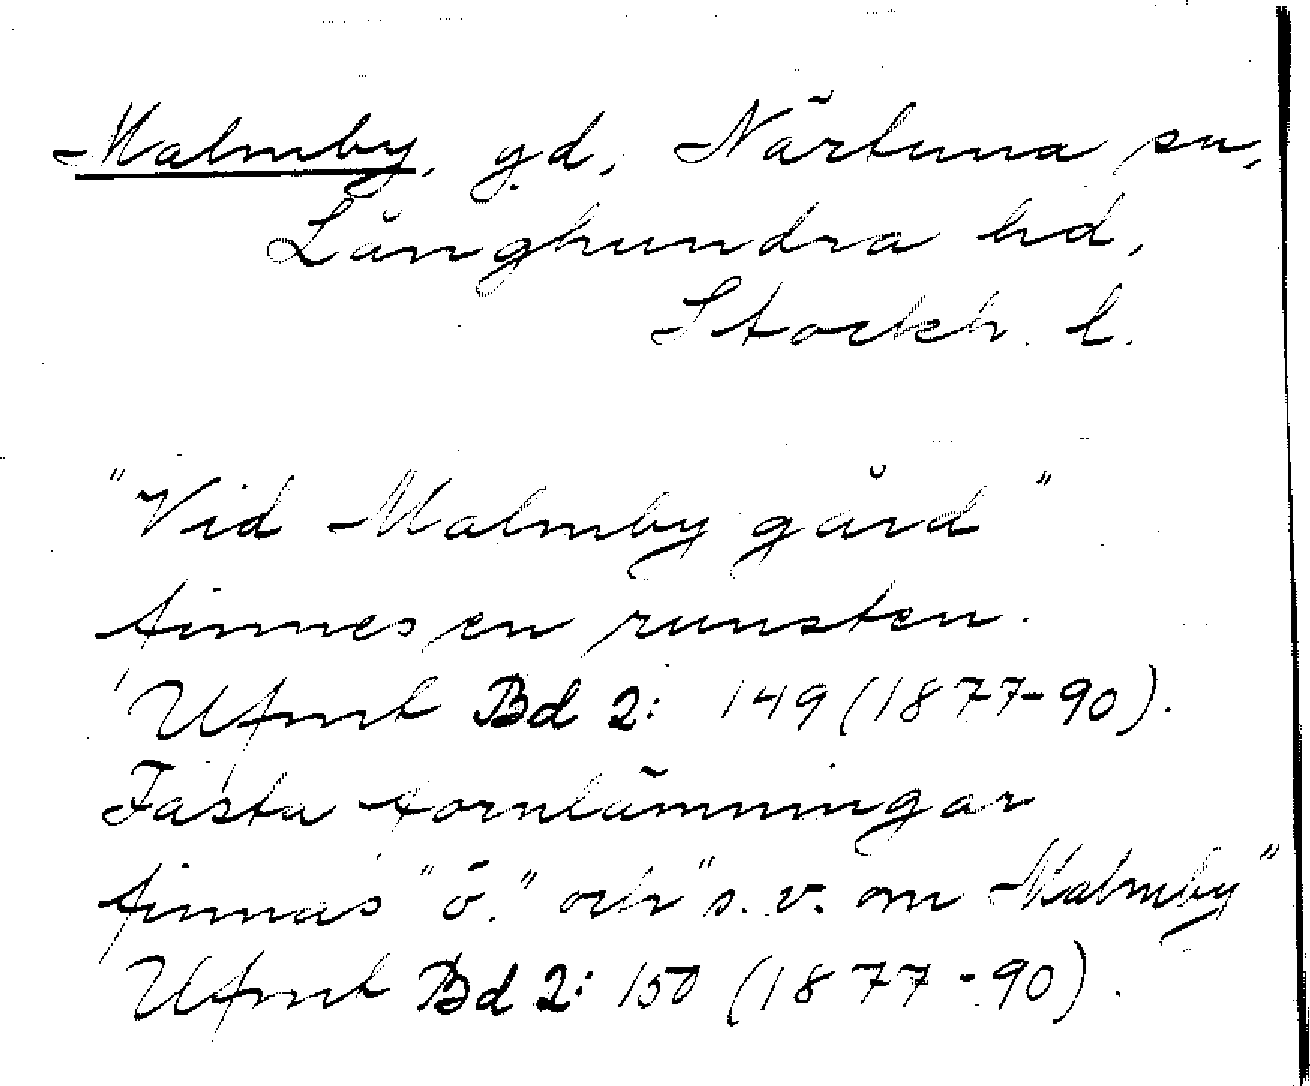 Malmby, gd, Närtuna sn,
Långhundra hd,
Stockh. l.
"Vid Malmby gård"
finnes en runsten.
Ufmt Bd 2: 149 (1877-90).
Fasta fornlämningar
finnas "ö." och "s. v. om Malmby"
Ufmt Bd 2: 150 (1877-90).